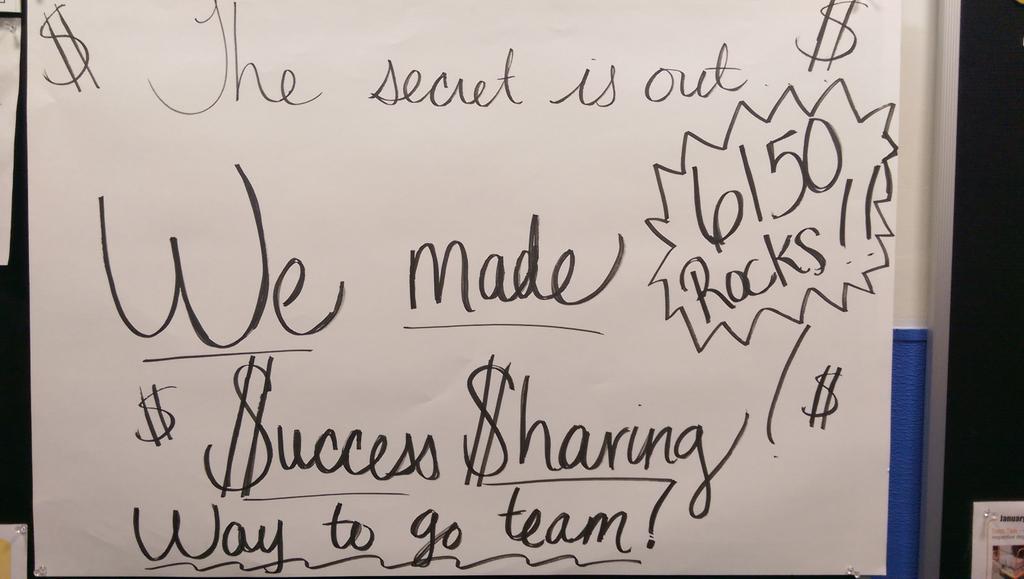 $ The secret is out $
6150
Rocks!!
We made
$ $uccess $haring! $
Way to go team!
January